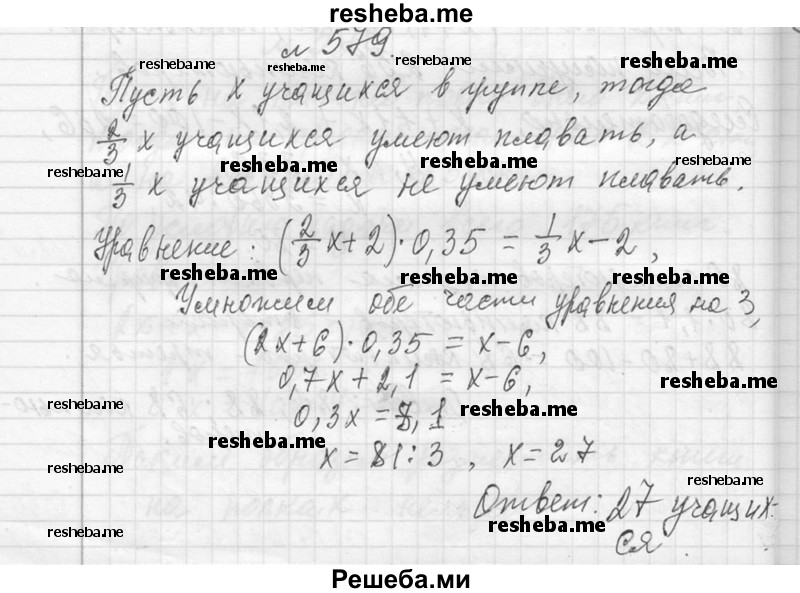 resheba.me
№ 579.
resheba.me resheba.me resheba.me resheba.me
Пусть x учащихся в группе, тогда
2/3 x учащихся умеют плавать, а
resheba.me resheba.me resheba.me resheba.me
1/3 x учащихся не умеют плавать.
Уравнение: (2/3 x + 2) · 0,35 = 1/3 x − 2,
resheba.me resheba.me resheba.me
Умножим обе части уравнения на 3,
(2x + 6) · 0,35 = x − 6,
0,7x + 2,1 = x − 6,
resheba.me
0,3x = 8,1
resheba.me resheba.me
resheba.me
x = 81 : 3, x = 27
resheba.me
resheba.me
Ответ: 27 учащих-
ся.
resheba.me resheba.me
Решеба.ми